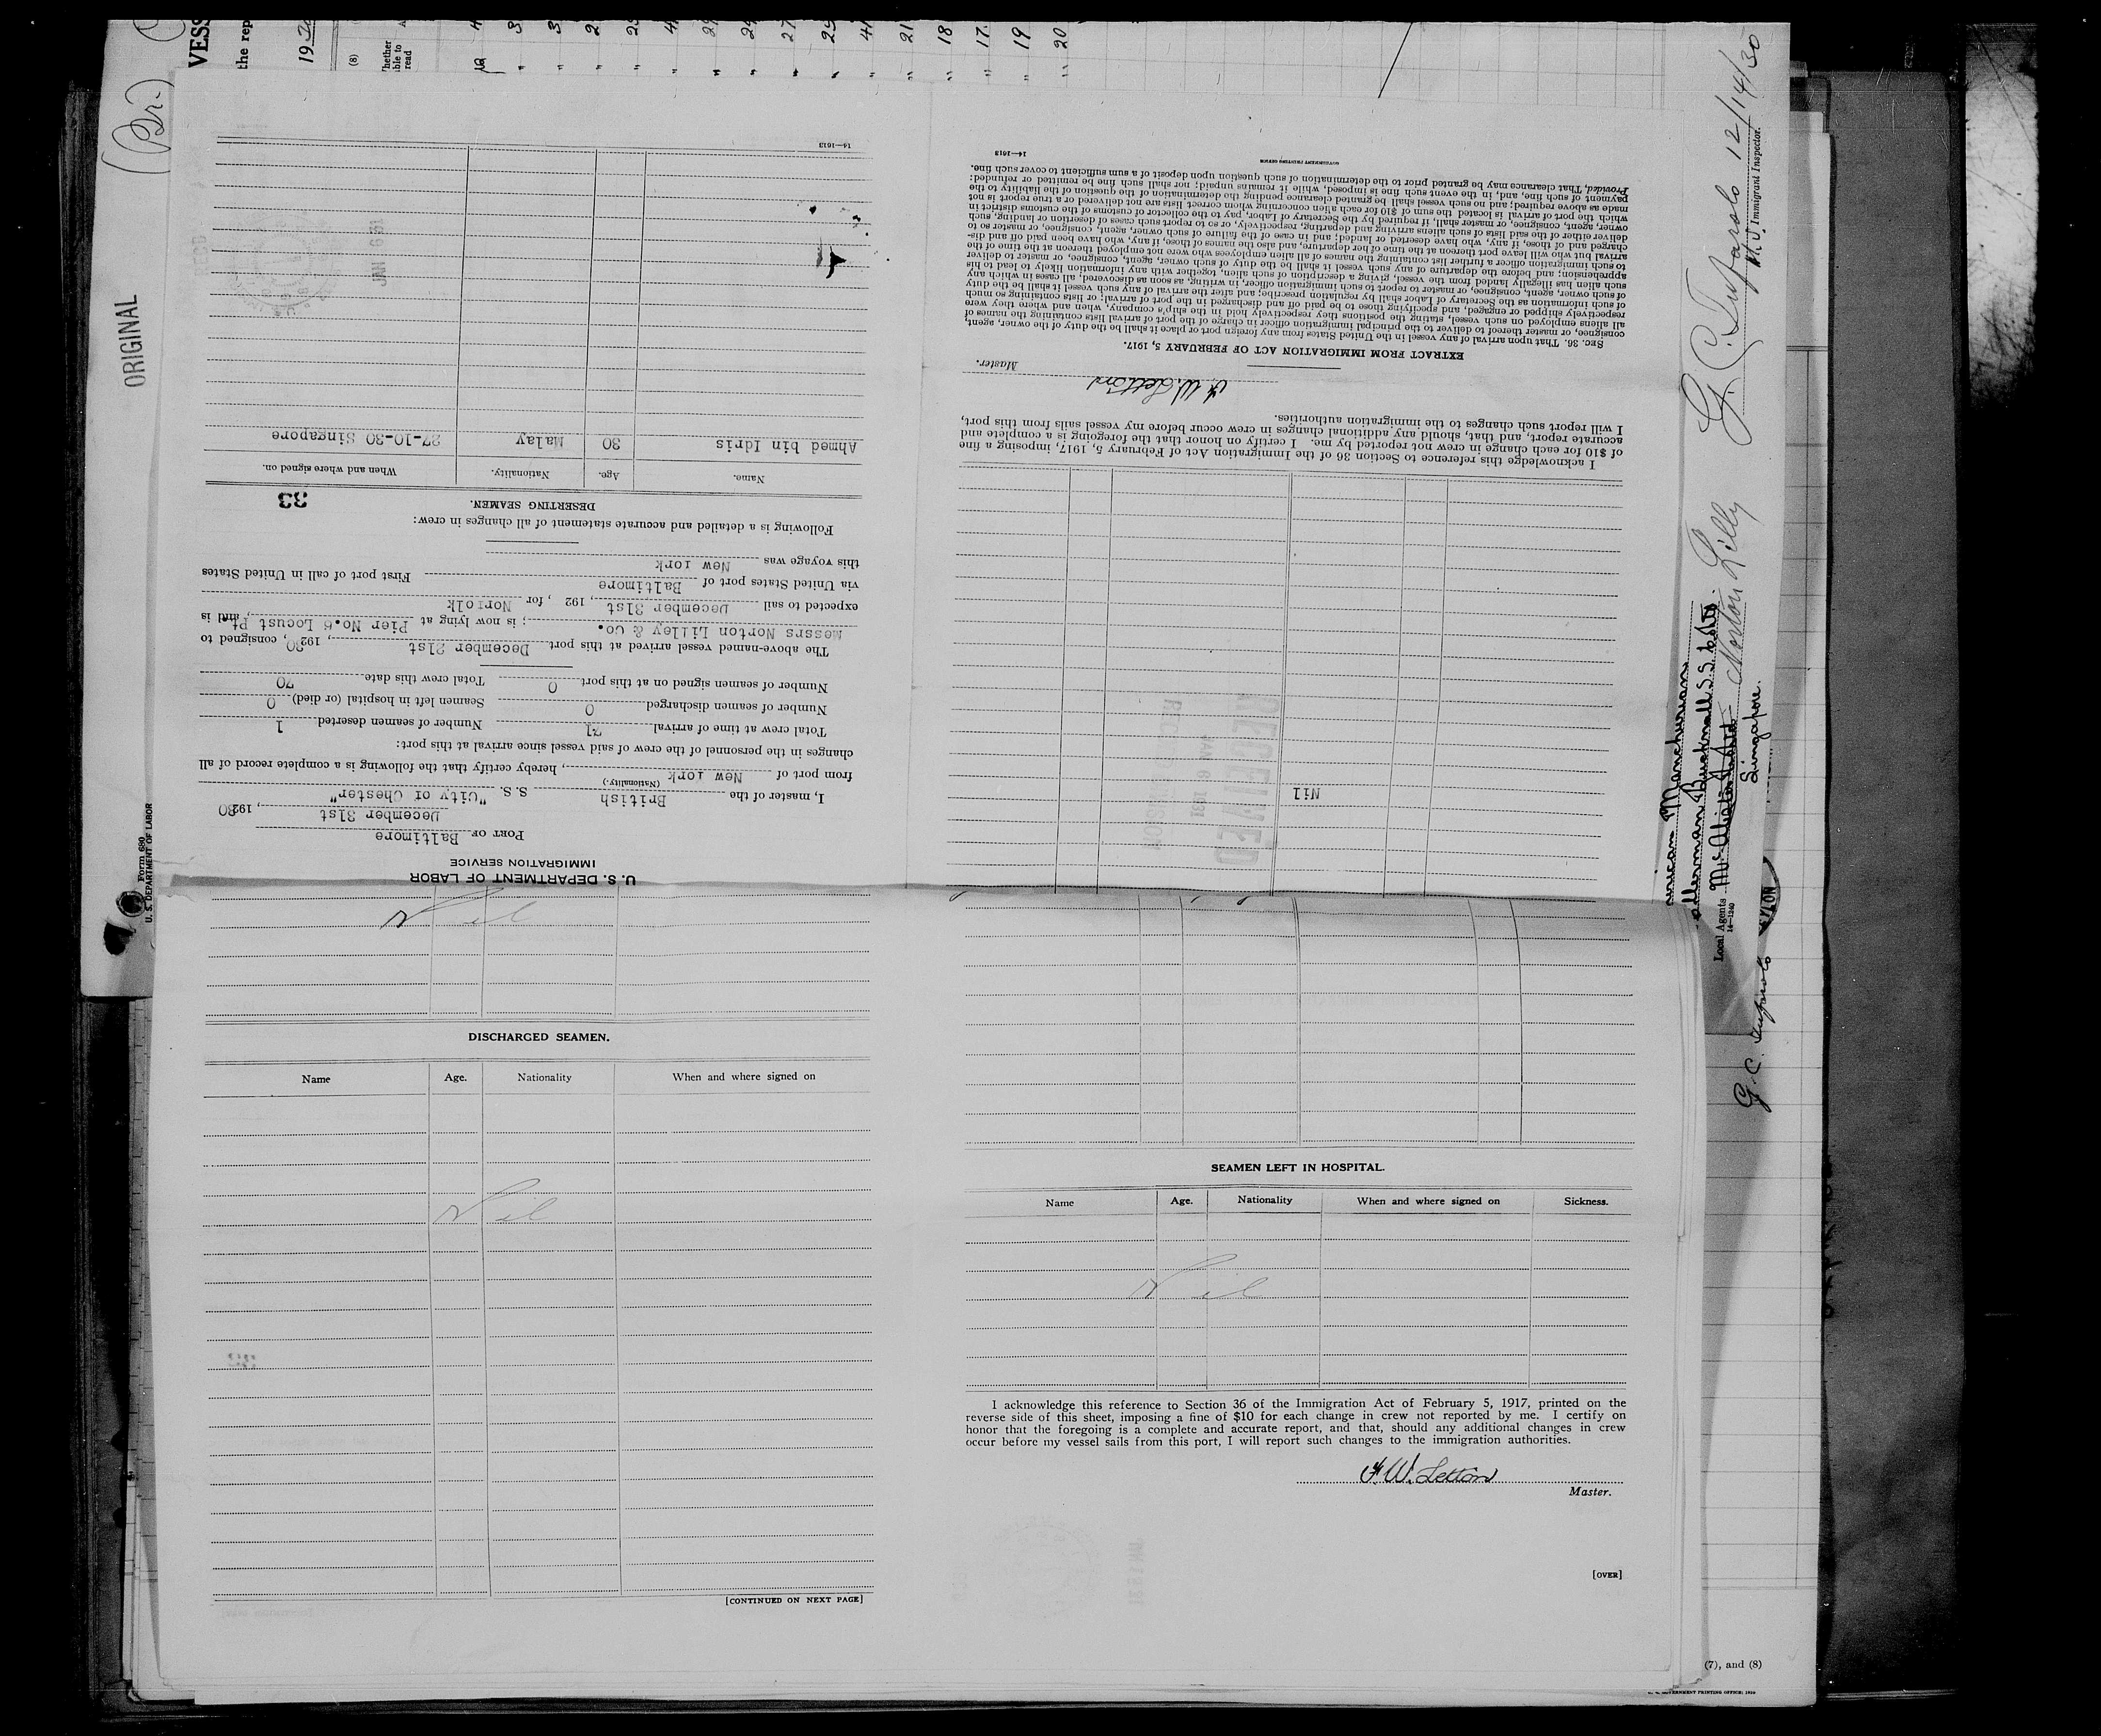 U. S. DEPARTMENT OF LABOR
IMMIGRATION SERVICE
PORT OF Baltimore
December 31st, 19230
I, master of the British S. S. "City of Chester"
(Nationality.)
from port of New York, hereby certify that the following is a complete record of all
changes in the personnel of the crew of said vessel since arrival at this port:
Total crew at time of arrival 71 Number of seamen deserted 1
Number of seamen discharged 0 Seamen left in hospital (or died) 0
Number of seamen signed on at this port 0 Total crew this date 70
The above-named vessel arrived at this port December 21st, 19230, consigned to
Messrs Norton Lilley & Co.; is now lying at Pier No.6 Locust Pt., and is
expected to sail December 31st, 192 , for Norfolk
via United States port of Baltimore First port of call in United States
this voyage was New York
Following is a detailed and accurate statement of all changes in crew:
DESERTING SEAMEN.
33
Name. Age. Nationality. When and where signed on.
Ahmed bin Idris 30 Malay 27-10-30 Singapore
JAN 6 31
14—1613
Nil
RECEIVED
JAN 6 1931
I acknowledge this reference to Section 36 of the Immigration Act of February 5, 1917, imposing a fine
of $10 for each change in crew not reported by me. I certify on honor that the foregoing is a complete and
accurate report, and that, should any additional changes in crew occur before my vessel sails from this port,
I will report such changes to the immigration authorities.
F. W. Letton
Master.
EXTRACT FROM IMMIGRATION ACT OF FEBRUARY 5, 1917.
Sec. 36. That upon arrival of any vessel in the United States from any foreign port or place it shall be the duty of the owner, agent,
consignee, or master thereof to deliver to the principal immigration officer in charge of the port of arrival lists containing the names of
all aliens employed on such vessel, stating the positions they respectively hold in the ship's company, when and where they were
respectively shipped or engaged, and specifying those to be paid off and discharged in the port of arrival; or lists containing so much
of such information as the Secretary of Labor shall by regulation prescribe; and after the arrival of any such vessel it shall be the duty
of such owner, agent, consignee, or master to report to such immigration officer, in writing, as soon as discovered, all cases in which any
such alien has illegally landed from the vessel, giving a description of such alien, together with any information likely to lead to his
apprehension; and before the departure of any such vessel it shall be the duty of such owner, agent, consignee, or master to deliver
to such immigration officer a further list containing the names of all alien employees who were not employed thereon at the time of the
arrival but who will leave port thereon at the time of her departure, and also the names of those, if any, who have been paid off and dis-
charged and of those, if any, who have deserted or landed; and in case of the failure of such owner, agent, consignee, or master so to
deliver either of the said lists of such aliens arriving and departing, respectively, or so to report such cases of desertion or landing, such
owner, agent, consignee, or master shall, if required by the Secretary of Labor, pay to the collector of customs of the customs district in
which the port of arrival is located the sum of $10 for each alien concerning whom correct lists are not delivered or a true report is not
made as above required; and no such vessel shall be granted clearance pending the determination of the question of the liability to the
payment of such fine, and, in the event such fine is imposed, while it remains unpaid; nor shall such fine be remitted or refunded:
Provided, That clearance may be granted prior to the determination of such question upon deposit of a sum sufficient to cover such fine.
14—1613
GOVERNMENT PRINTING OFFICE
Nil
DISCHARGED SEAMEN.
Name Age. Nationality When and where signed on
Nil
[CONTINUED ON NEXT PAGE]
SEAMEN LEFT IN HOSPITAL.
Name Age. Nationality When and where signed on Sickness.
Nil
I acknowledge this reference to Section 36 of the Immigration Act of February 5, 1917, printed on the
reverse side of this sheet, imposing a fine of $10 for each change in crew not reported by me. I certify on
honor that the foregoing is a complete and accurate report, and that, should any additional changes in crew
occur before my vessel sails from this port, I will report such changes to the immigration authorities.
F. W. Letton
Master.
[OVER]
ORIGINAL
(Br.)
Form 680
U. S. DEPARTMENT OF LABOR
VESS
the rep
(8)
read
12/14/30
U. S. Immigrant Inspector.
Manchurian
Bucknall S.S.
Local Agents
Norton Lilly
14—1240
Singapore.
(7), and (8)